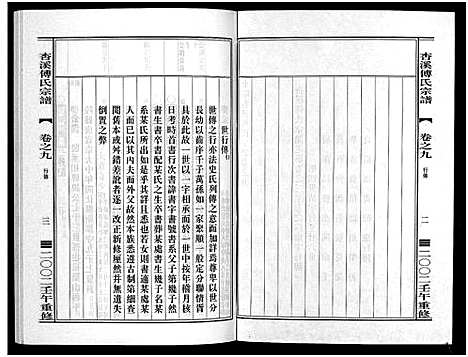 杏溪傅氏宗譜
卷之九
行傳
二
二〇〇二壬午重修
世行傳引
世傳之行亦法史氏列傳之意而加詳爲尊卑以世分
長幼以齒序千子萬孫如一家繫順一般定分聯情胥
具於此故一世以一字相承而於一世中按年稽月核
日考時首書行次書諱書字書號書系父子第幾子然
書生書卒書配某氏之生卒書葬某處書生幾子名某
系某氏所出如是乎其詳且悉也若女則書適某處某
人而已其內夫而外父故然本族悉遵古制第細查
閱舊本或舛錯差訛者逐一改正新修厘然井無遺失
倒置之弊
杏溪傅氏宗譜
卷之九
行傳
三
二〇〇二壬午重修